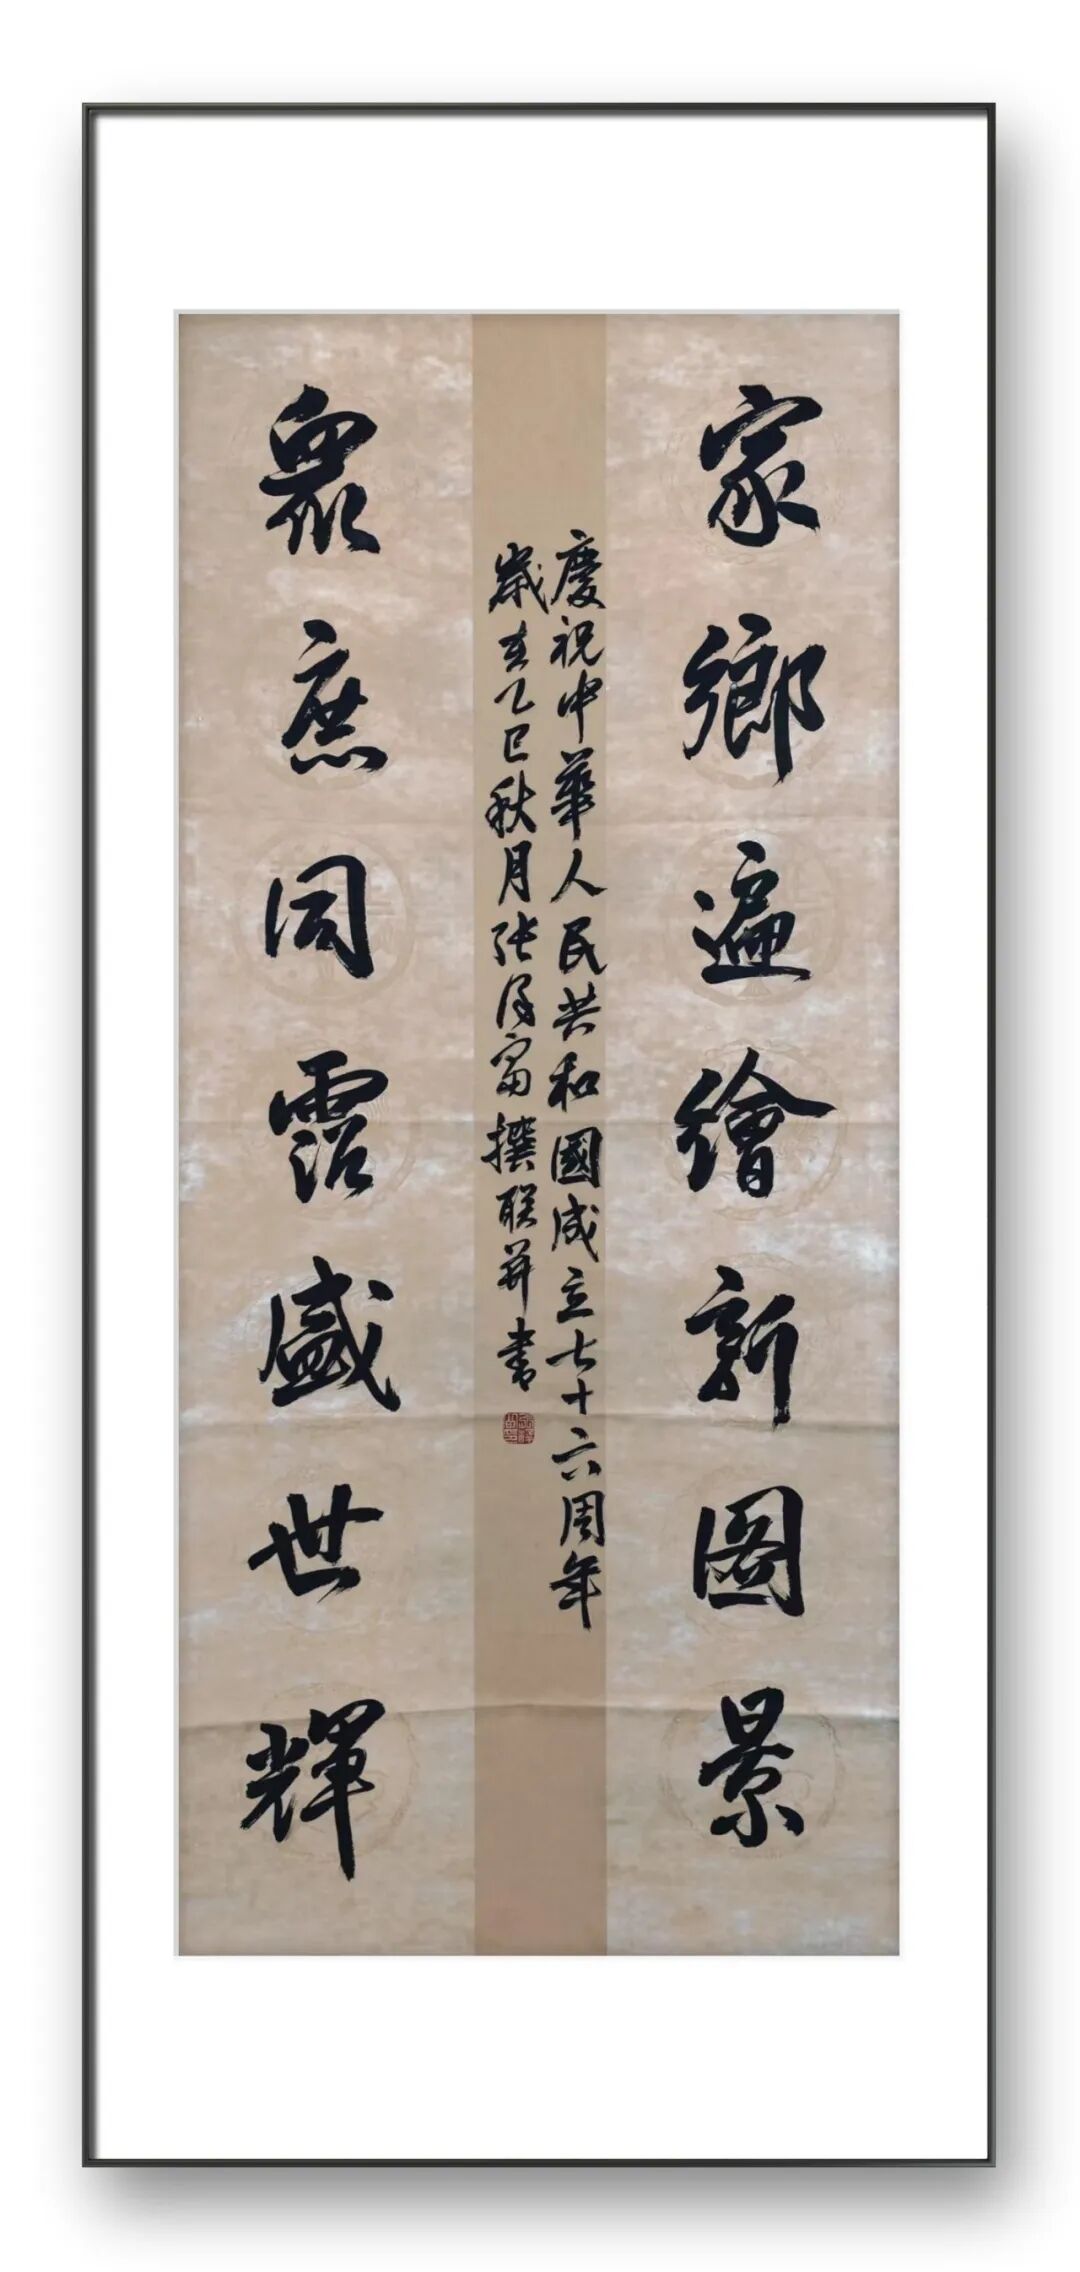 家鄉遍繪新圖景
慶祝中華人民共和國成立七十六周年
歲在乙巳秋月张富撰联并書
衆庶同霑盛世輝